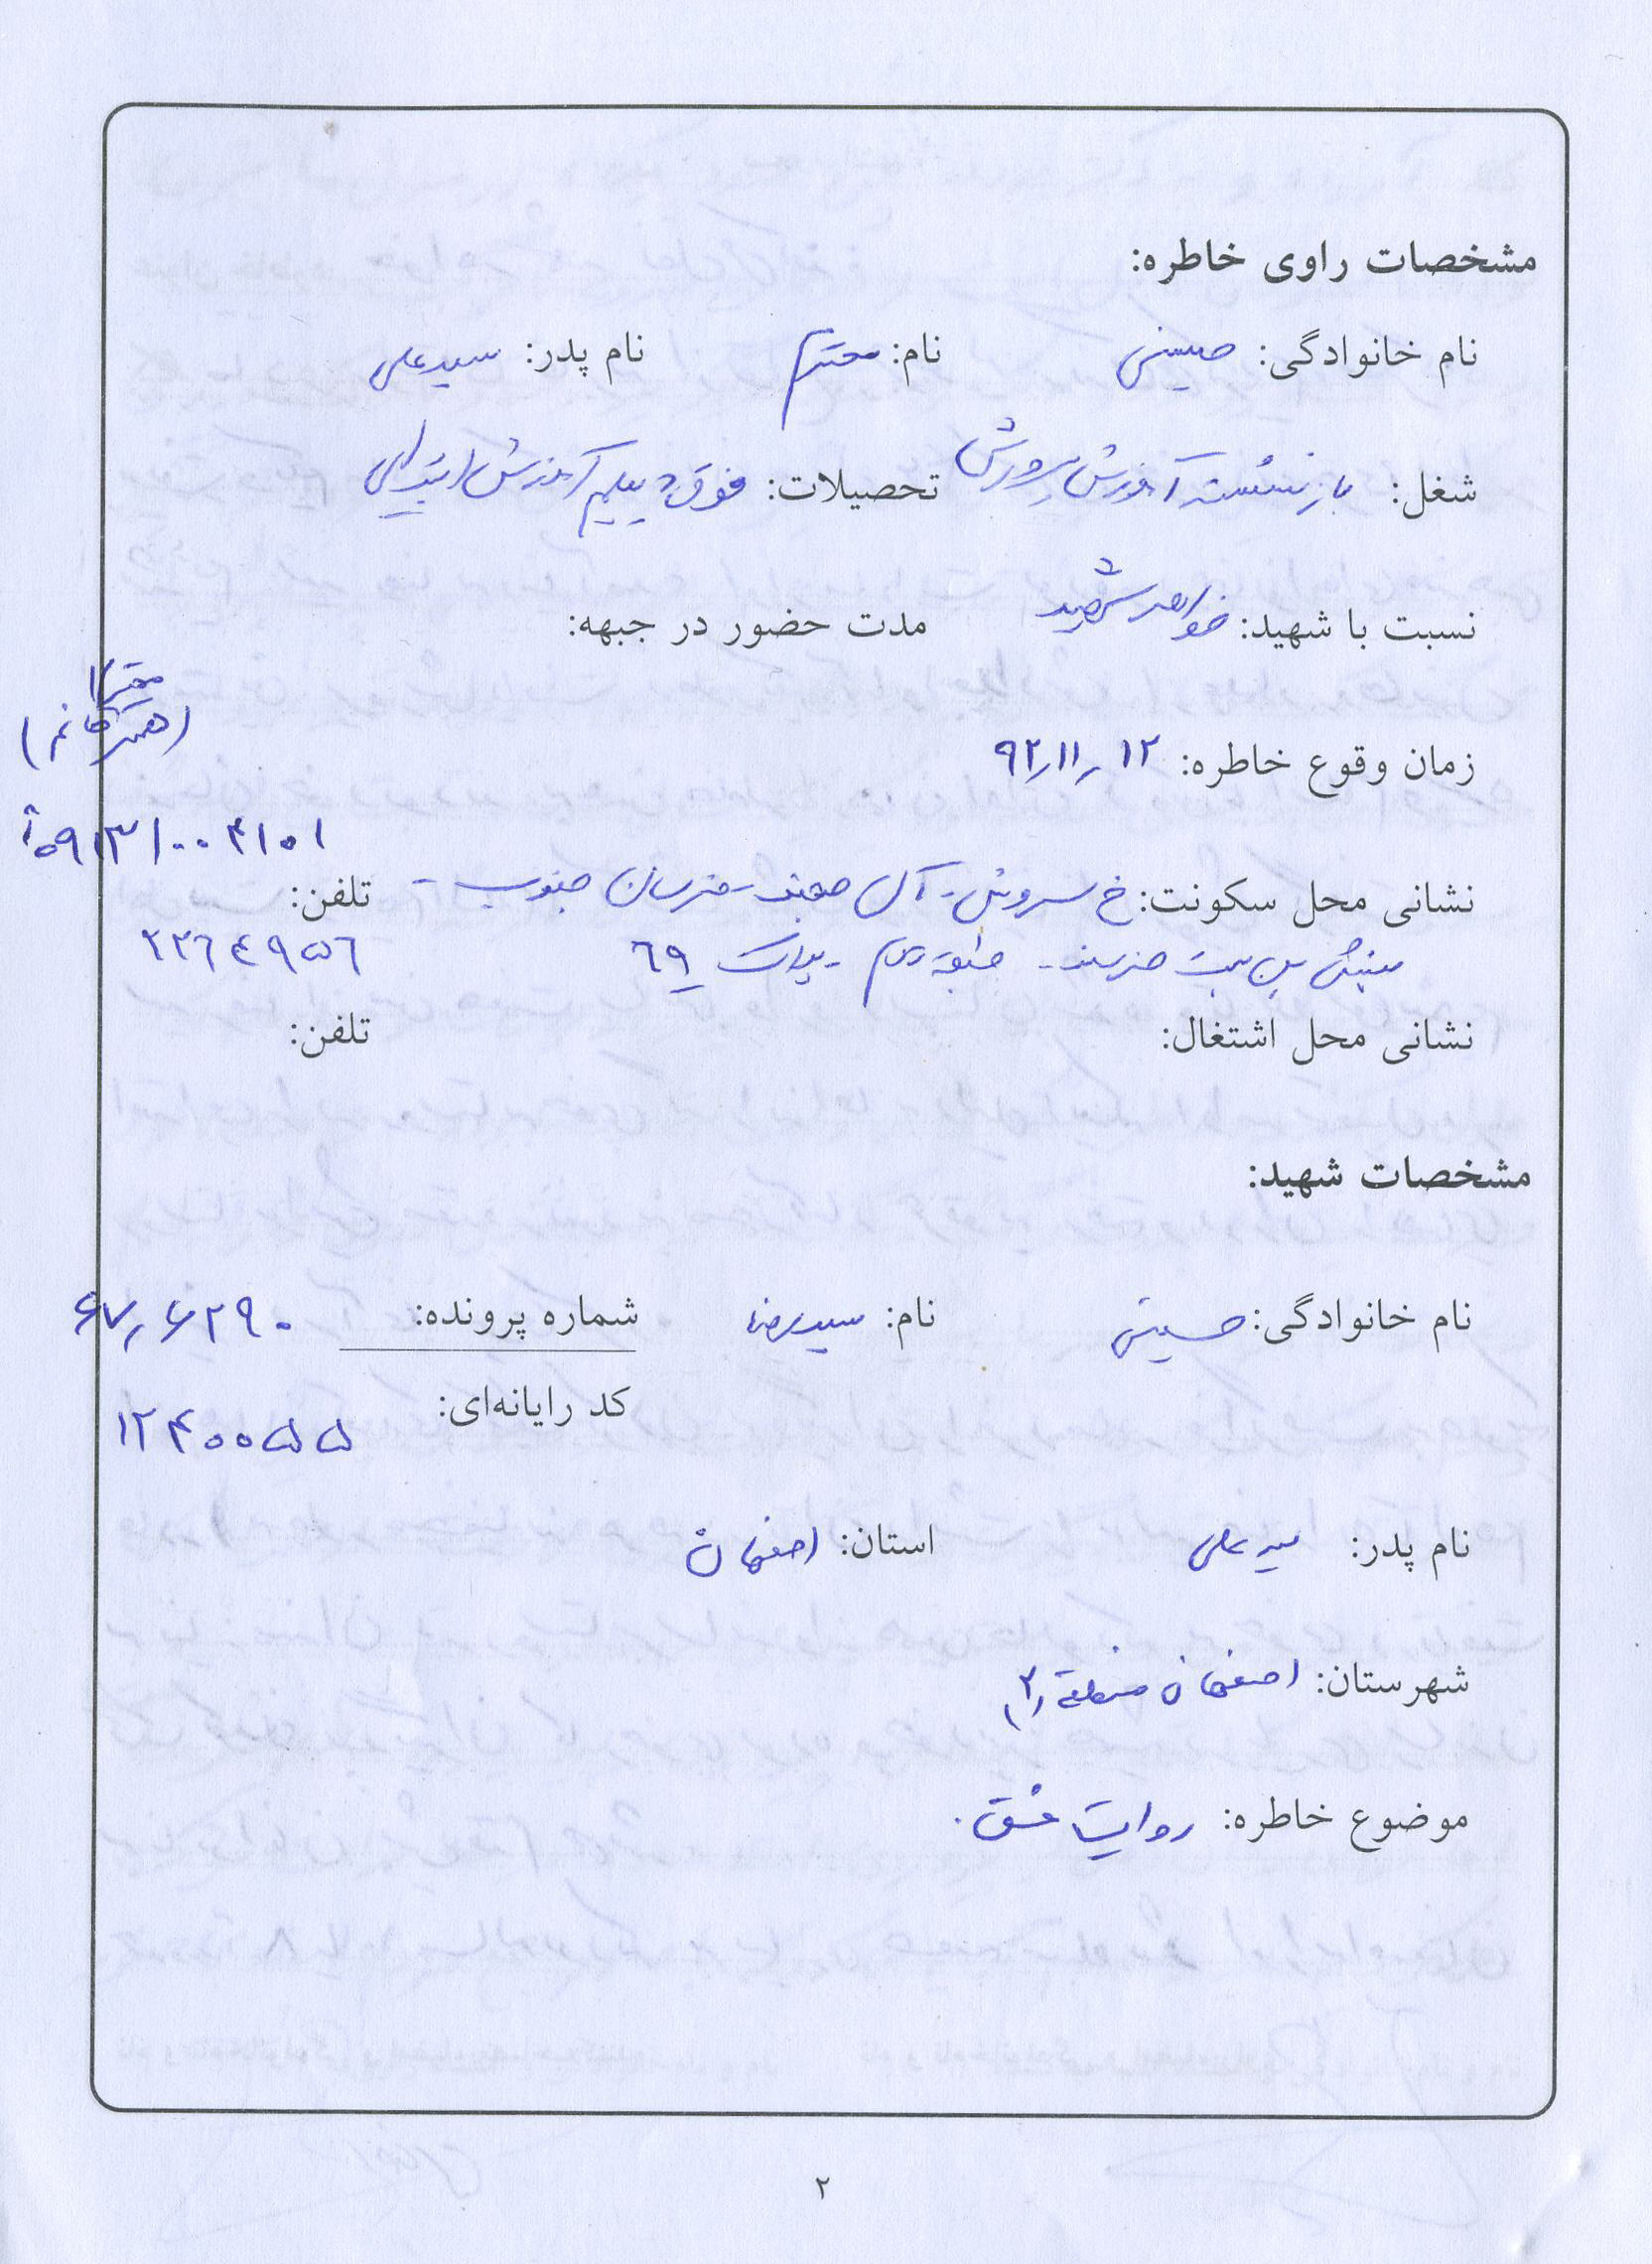 مشخصات راوی خاطره:
نام خانوادگی: حسینی نام: محترم نام پدر: سیدعلی
شغل: بازنشسته آموزش پرورش تحصیلات: فوق دیپلم آموزش ابتدایی
نسبت با شهید: خواهر شهید مدت حضور در جبهه:
(همسر خانم)
زمان وقوع خاطره: ۹۲٫۱۱٫۱۲
۰۹۱۳۱۰۰۴۱۵۱
نشانی محل سکونت: خ سروش - آل محمد - خرسان جنوبی - تلفن:
نبش بن بست خرسند - طبقه دوم - پلاک ۶۹ ۲۲۶۴۹۵۶
نشانی محل اشتغال: تلفن:
مشخصات شهید:
نام خانوادگی: حسینی نام: سیدرضا شماره پرونده: ۶۷٫۶۲۹۰
کد رایانه‌ای: ۱۲۴۰۰۵۵
نام پدر: سیدعلی استان: اصفهان
شهرستان: اصفهان منطقه ۲
موضوع خاطره: روایت عشق.
۲